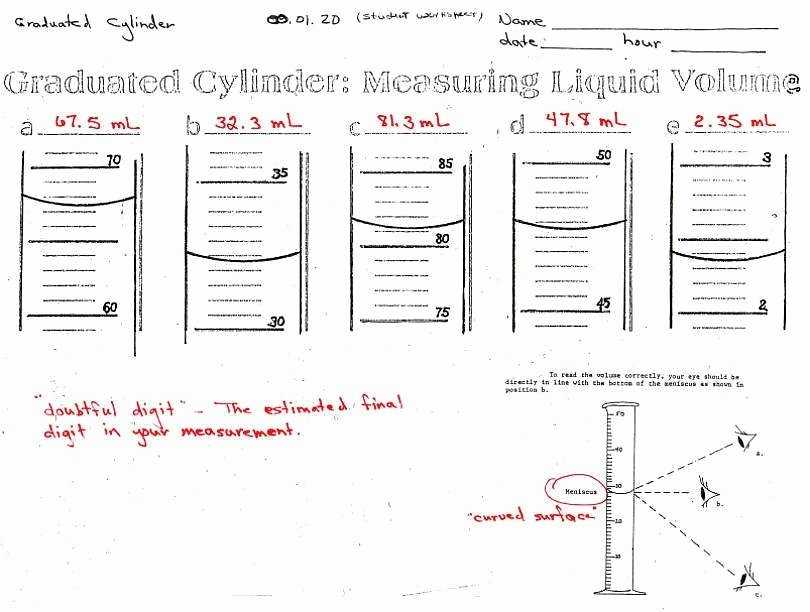 Graduated Cylinder
.01.20 (student worksheet)
Name
date: hour
Graduated Cylinder: Measuring Liquid Volume
a 67.5 mL b 32.3 mL c 81.3 mL d 47.8 mL e 2.35 mL
70 35 85 50 3
80
60 30 75 45 2
To read the volume correctly, your eye should be
directly in line with the bottom of the meniscus as shown in
position b.
"doubtful digit" - The estimated final
digit in your measurement.
50
40
a.
30
Meniscus
b.
"curved surface"
c.